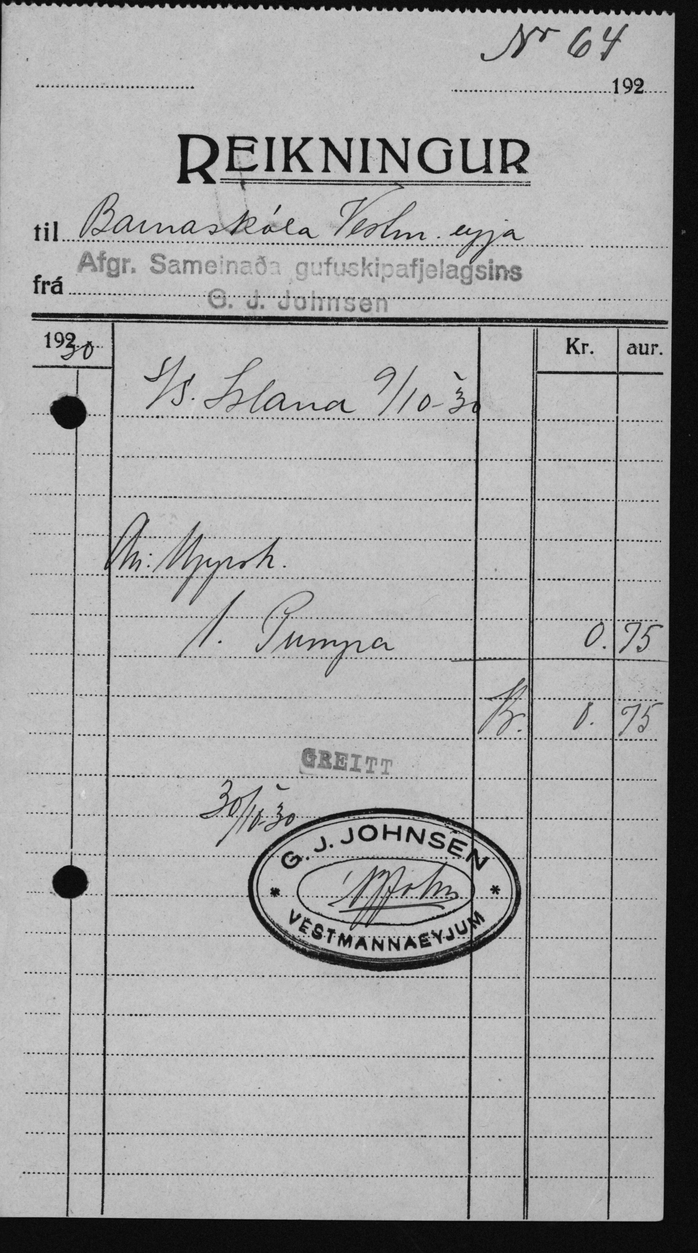 Nr 64
192
REIKNINGUR
til Barnaskóla Vestm.eyja
frá Afgr. Sameinaða gufuskipafjelagsins
G. J. Johnsen
192 30 Kr. aur.
S/S. Island 9/10-30
An: Uppsk.
1. Pumpa 0.75
Kr. 0.75
GREITT
30/10-30
G. J. JOHNSEN
VESTMANNAEYJUM